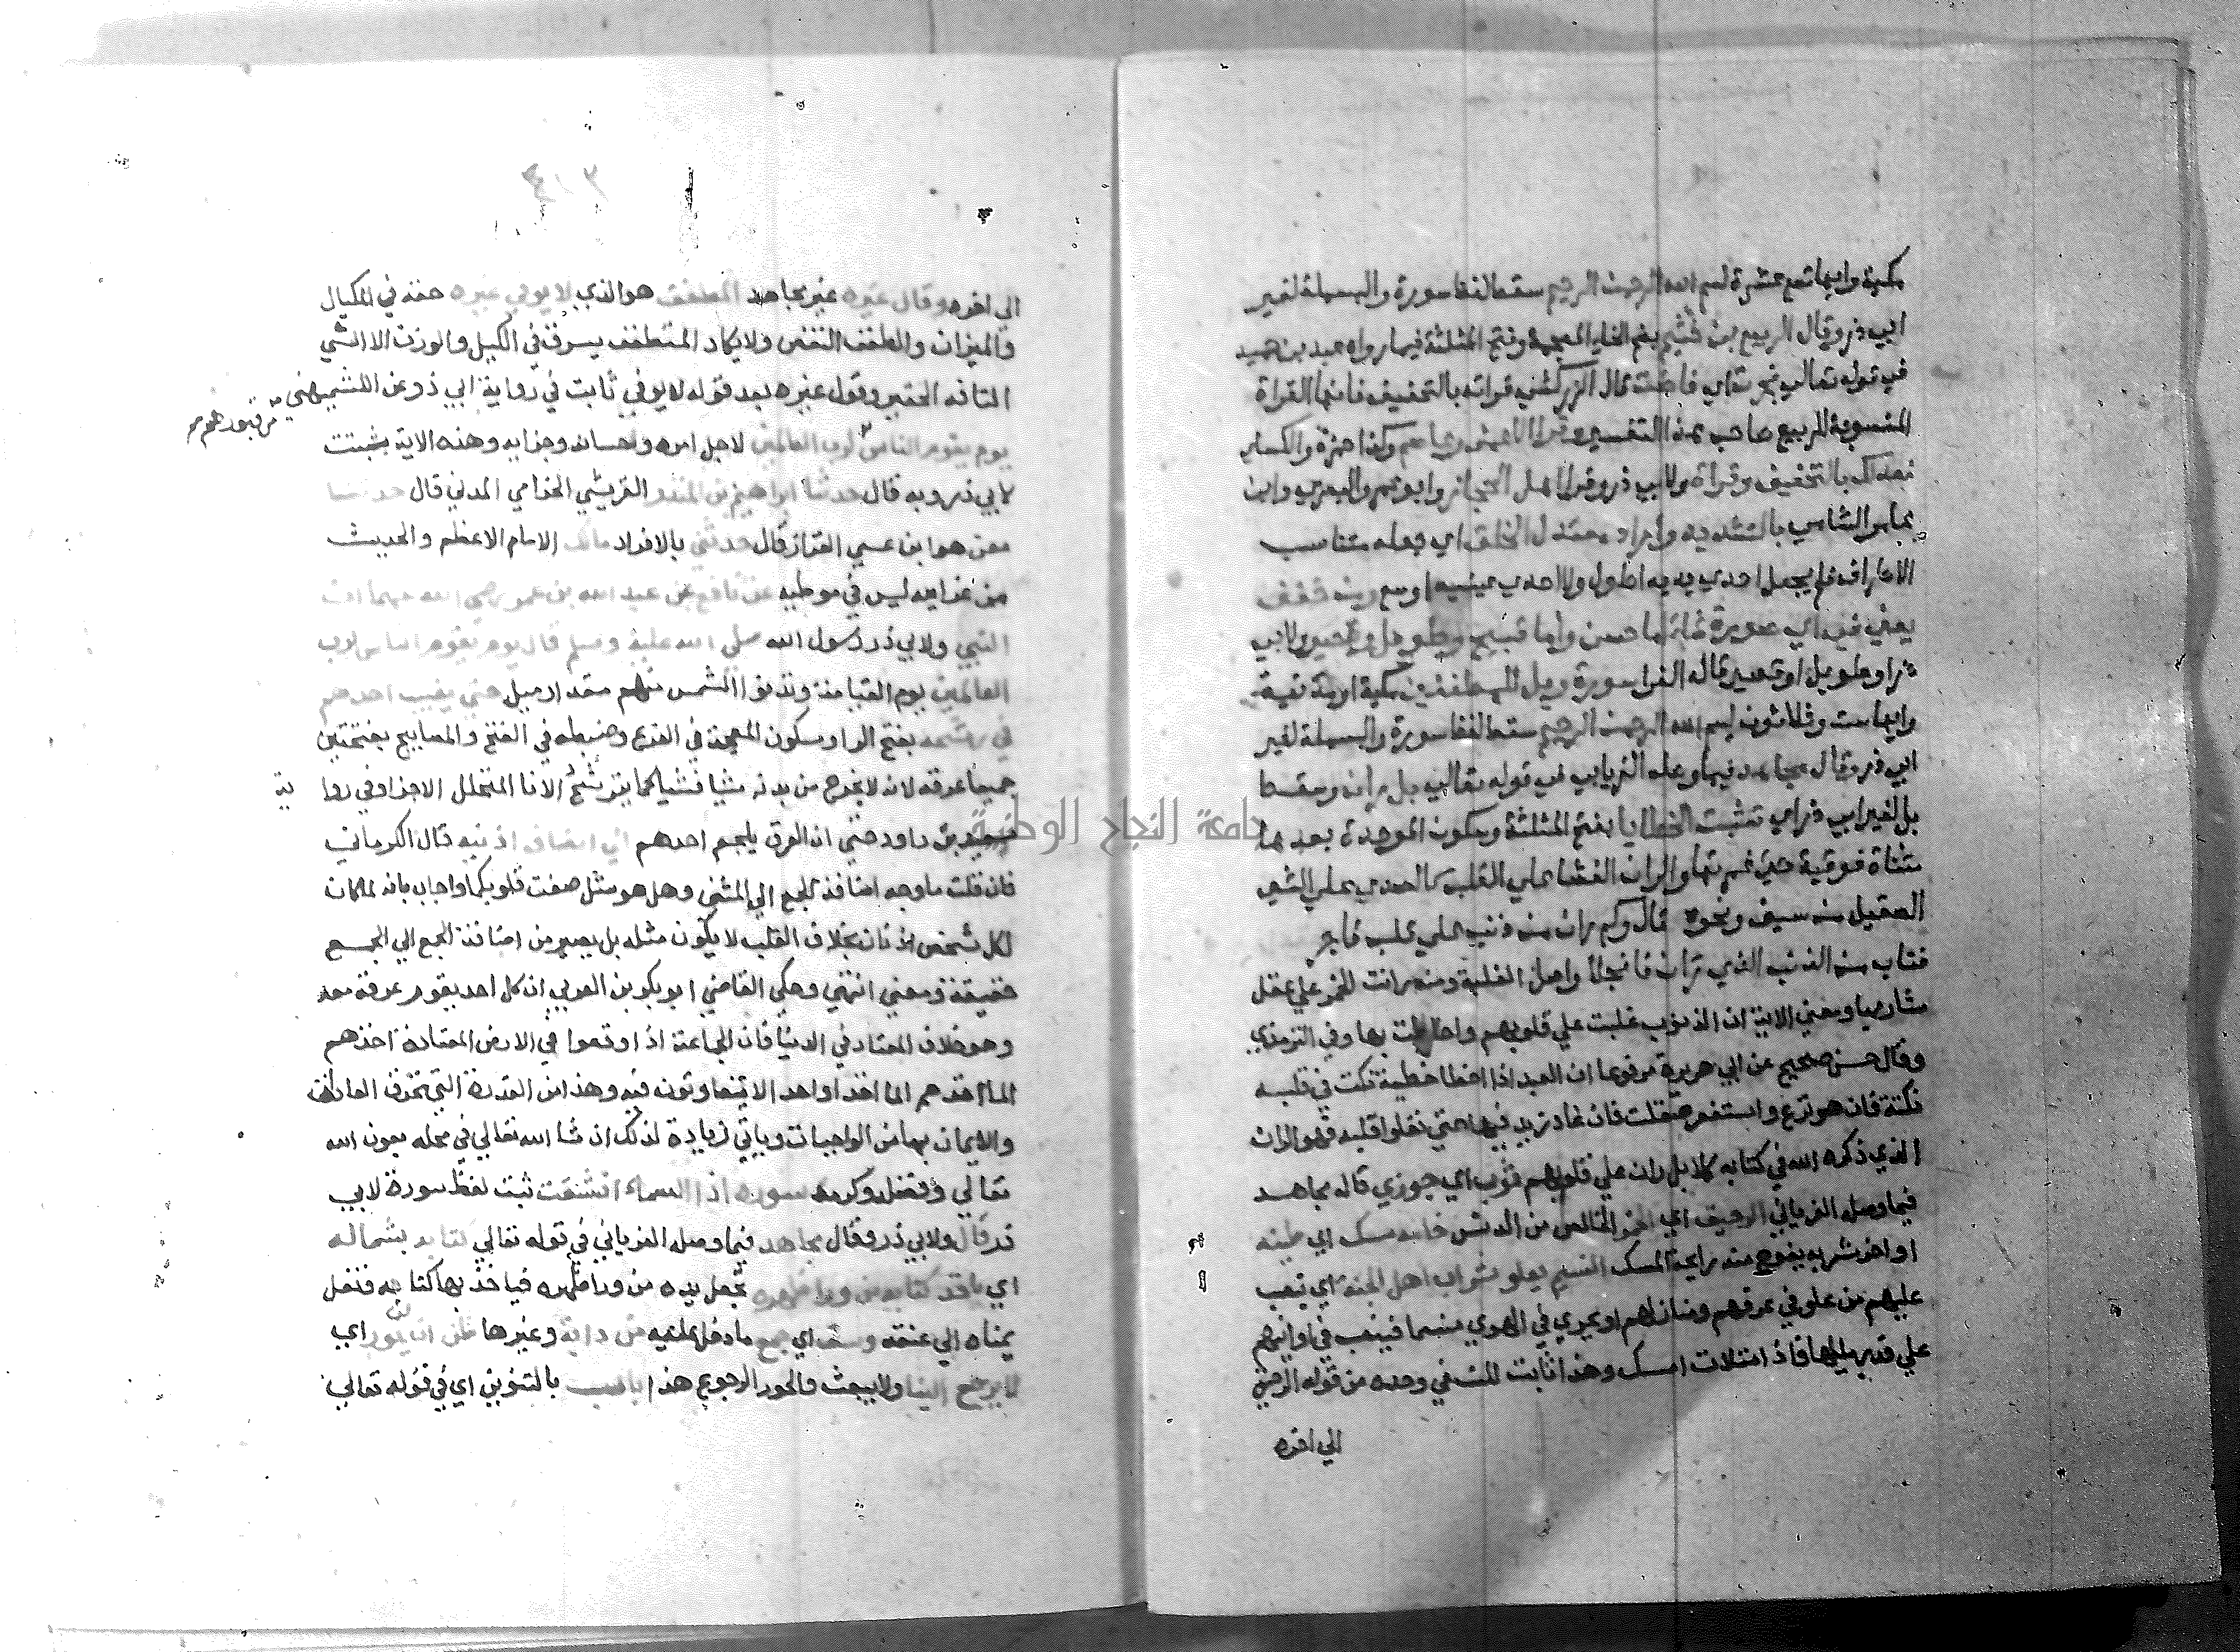 مكية وايها تسع عشرة بسم الله الرحمن الرحيم سقط لفظ سورة والبسملة لغير
ابي ذر وقال الربيع بن خثيم بضم الخاء المعجمة وفتح المثلثة فيما رواه عبد بن حميد
في قوله تعالى فجرت اي فاضت قال الزركشي قراته بالتخفيف فانها القراة
المنسوبة للربيع صاحب هذا التفسير وقرا الاعمش وعاصم وكذا حمزة والكساي
فعدلك بالتخفيف وقراة ولابي ذر وقرا اهل الحجاز وابو عمرو البصري وابن
عامر الشامي بالتشديد واراد معتدل الخلق اي جعله متناسب
الاطراف فلم يجعل احدي يديه اطول ولا احدي عينيه اوسع ومن خفف
يعني في اي صورة شا اما حسن واما قبيح وطويل وقصير ولابي
ذر او طويل او قصير قاله الفرا سورة ويل للمطففين مكية او مدنية
وايها ست وثلاثون بسم الله الرحمن الرحيم سقط لفظ سورة والبسملة لغير
ابي ذر وقال مجاهد فيما وصله الفريابي في قوله تعالى بل ران وسقط
بل لغير ابي ذر اي تثبت الخطايا بفتح المثلثة وسكون الموحدة بعدها
مثناة فوقية حتي غمرتها والران الغشا علي القلب كالصدي علي الشي
الصقيل من سيف ونحوه قال وكم ران من ذنب علي قلب فاجر
فتاب من الذنب الذي ران فانجلا واصل الغلبة ومنه رانت الخمر علي عقل
شاربها ومعني الاية ان الذنوب غلبت علي قلوبهم واحاطت بها وفي الترمذي
وقال حسن صحيح عن ابي هريرة مرفوعا ان العبد اذا اخطا خطيئة نكت في قلبه
نكتة فان هو نزع واستغفر صقلت فان عاد زيد فيها حتي تعلوا قلبه فهو الران
الذي ذكره الله في كتابه كلا بل ران علي قلوبهم ثوب اي جوزي قاله مجاهد
فيما وصله الفريابي الرحيق اي الخمر الخالص من الدنس ختامه مسك اي طينه
او اخر شربه يفوح منه رايحة المسك التسنيم يعلو شراب اهل الجنة اي ينصب
عليهم من علو في غرفهم ومنازلهم او يجري في الهوي متسما فينصب في اوانيهم
علي قدر ملئها فاذا امتلات امسك وهذا ثابت للنسفي وحده من قوله الرحيق
الي اخره
الي اخره وقال غيره غير مجاهد المطفف هو الذي لا يوفي غيره حقه في المكيال
والميزان والطفف النقص ولا يكاد المتطفف يسرق في الكيل والوزن الا الشي
التافه الحقير وقول غيره بعد قوله لا يوفي ثابت في رواية ابي ذر عن الكشميهني
من قبورهم
يوم يقوم الناس لرب العالمين لاجل امره وحسابه وجزايه وهذه الاية ثبتت
لابي ذر وبه قال حدثنا ابراهيم بن المنذر القريشي الحزامي المدني قال حدثنا
معن هو ابن عيسي القزاز قال حدثني بالافراد مالك الامام الاعظم والحديث
من غرايبه ليس في موطيه عن نافع عن عبد الله بن عمر رضي الله عنهما ان
النبي ولابي ذر رسول الله صلي الله عليه وسلم قال يوم يقوم الناس لرب
العالمين يوم القيامة وتدنوا الشمس منهم مقدار ميل حتي يغيب احدهم
في رشحه بفتح الرا وسكون المعجمة في الفرع وضبطه في الفتح والمصابيح بفتحتين
جميعا عرقه لانه لا يخرج من بدنه شيا فشيا كما يترشح الانا المتخلل الاجزا وفي روا
ية
سعيد بن داود حتي ان العرق يلجم احدهم الي انصاف اذنيه قال الكرماني
فان قلت ما وجه اضافة الجمع الي المثني وهل هو مثل صغت قلوبكما واجاب بانه لما كان
لكل شخص اذنان بخلاف القلب لا يكون مثله بل يصير من اضافة الجمع الي الجمع
حقيقة ومعني انتهي وحكي القاضي ابو بكر بن العربي ان كل احد يقوم عرقه معه
وهو خلاف المعتاد في الدنيا فان الجماعة اذا وقفوا في الارض المعتادة اخذهم
الما اخذهم الما اخذا واحد الا يتفاوتون فيه وهذا من القدرة التي تخرق العادات
والايمان بها من الواجبات وياتي زيادة لذلك ان شا الله تعالي في محله بعون الله
تعالي وفضله وكرمه سورة اذا السماء انشقت ثبت لفظ سورة لابي
ذر قال ولابي ذر وقال مجاهد فيما وصله الفريابي في قوله تعالي كتابه بشماله
اي ياخذ كتابه من ورا ظهره تجعل يده من ورا ظهره فياخذ بها كتابه فتغل
يمناه الي عنقه وسق اي جمع ما دخل عليه من دابة وغيرها ظن ان لن يحور اي
لا يرجع الينا ولا يبعث والحور الرجوع هذا باب بالتنوين اي في قوله تعالي
جامعة النجاح الوطنية